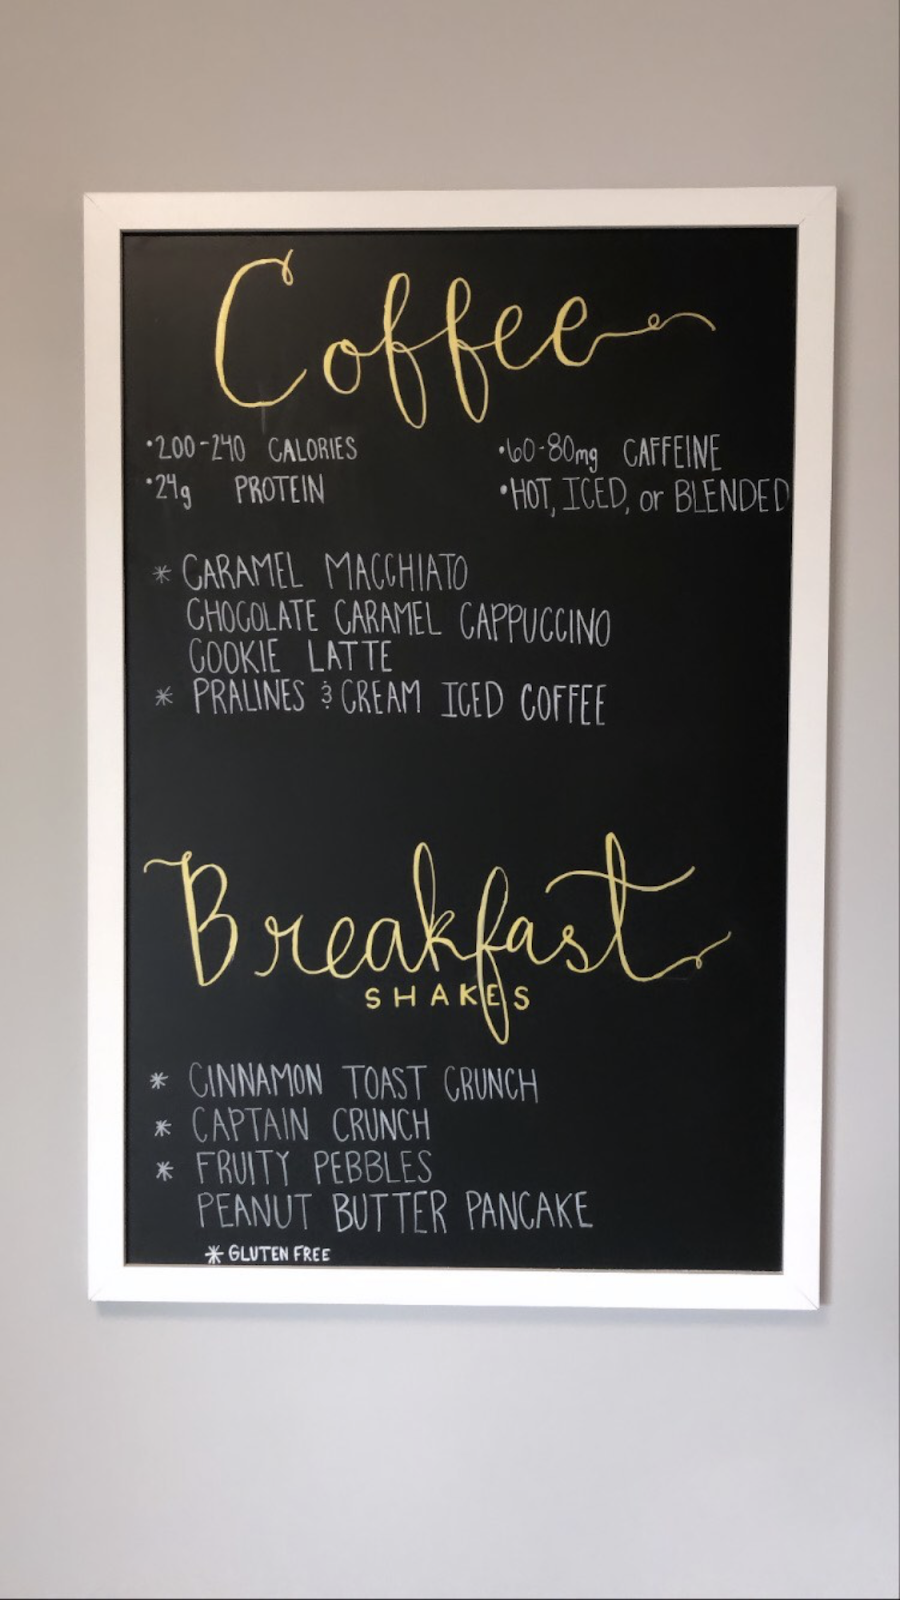 Coffee
•200-240 CALORIES
•24g PROTEIN
•60-80mg CAFFEINE
•HOT, ICED, or BLENDED
* CARAMEL MACCHIATO
CHOCOLATE CARAMEL CAPPUCCINO
COOKIE LATTE
* PRALINES & CREAM ICED COFFEE
Breakfast
SHAKES
* CINNAMON TOAST CRUNCH
* CAPTAIN CRUNCH
* FRUITY PEBBLES
PEANUT BUTTER PANCAKE
* GLUTEN FREE